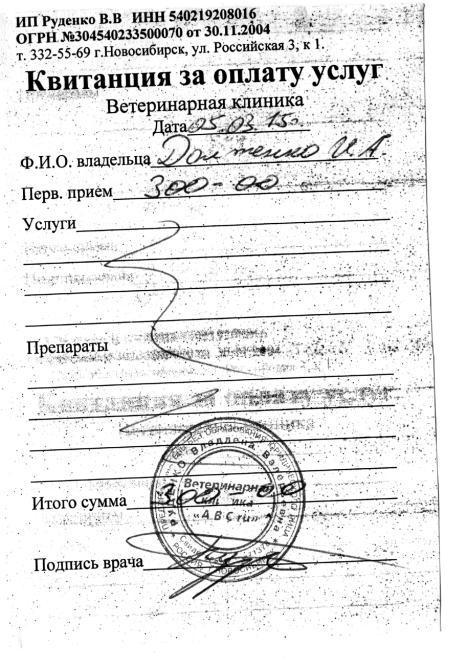 ИП Руденко В.В ИНН 540219208016
ОГРН №304540233500070 от 30.11.2004
т. 332-55-69 г.Новосибирск, ул. Российская 3, к 1.
Квитанция за оплату услуг
Ветеринарная клиника
Дата 25.03.15г.
Ф.И.О. владельца И.А.
Перв. приём 300-00
Услуги
Препараты
Ветеринарная
клиника
Итого сумма 300 00
Подпись врача